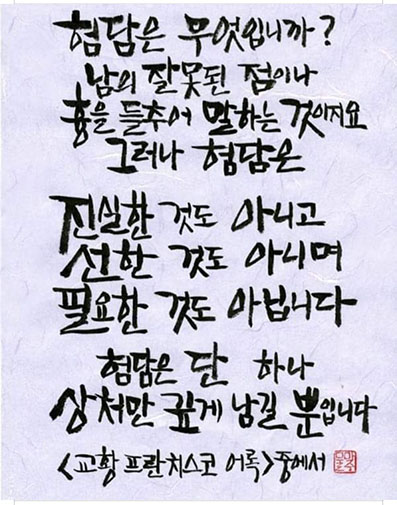 험담은 무엇입니까?
남의 잘못된 점이나
흉을 들추어 말하는 것이지요
그러나 험담은
진실한 것도 아니고
선한 것도 아니며
필요한 것도 아닙니다
험담은 단 하나
상처만 깊게 남길 뿐입니다
<교황 프란치스코 어록>중에서